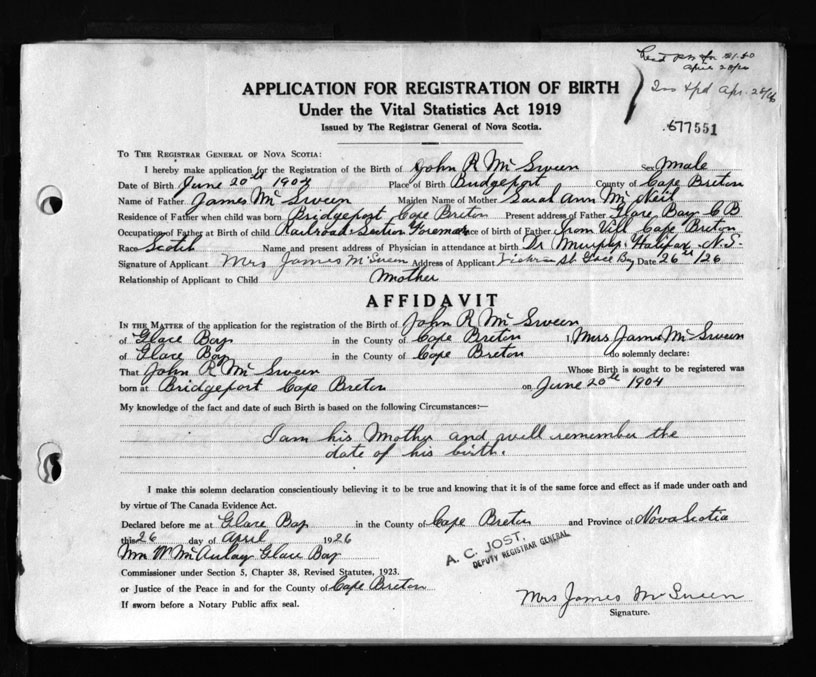 April 28/26
APPLICATION FOR REGISTRATION OF BIRTH
Under the Vital Statistics Act 1919
Issued by The Registrar General of Nova Scotia.
577551
TO THE REGISTRAR GENERAL OF NOVA SCOTIA:
I hereby make application for the Registration of the Birth of John R McSween Sex male
Date of Birth June 20th 1904 Place of Birth Bridgeport County of Cape Breton
Name of Father James McSween Maiden Name of Mother Sarah Ann McNeil
Residence of Father when child was born Bridgeport Cape Breton Present address of Father Glace Bay C B
Occupation of Father at Birth of child Railroad Section Foreman ce of birth of Father Iron Vill Cape Breton
Race Scotch Name and present address of Physician in attendance at birth Dr Murphy Halifax N.S.
Signature of Applicant Mrs James McSween Address of Applicant St Glace Bay Date 26th/26
Relationship of Applicant to Child Mother
AFFIDAVIT
IN THE MATTER of the application for the registration of the Birth of John R McSween
of Glace Bay in the County of Cape Breton I, Mrs James McSween
of Glace Bay in the County of Cape Breton do solemnly declare:
That John R McSween Whose Birth is sought to be registered was
born at Bridgeport Cape Breton on June 20th 1904
My knowledge of the fact and date of such Birth is based on the following Circumstances:—
I am his Mother and well remember the
date of his birth.
I make this solemn declaration conscientiously believing it to be true and knowing that it is of the same force and effect as if made under oath and
by virtue of The Canada Evidence Act.
Declared before me at Glace Bay in the County of Cape Breton and Province of Nova Scotia
this 26 day of April 1926
Wm W McAulay Glace Bay
A. C. JOST,
DEPUTY REGISTRAR GENERAL
Commissioner under Section 5, Chapter 38, Revised Statutes, 1923.
or Justice of the Peace in and for the County of Cape Breton
If sworn before a Notary Public affix seal.
Mrs James McSween
Signature.